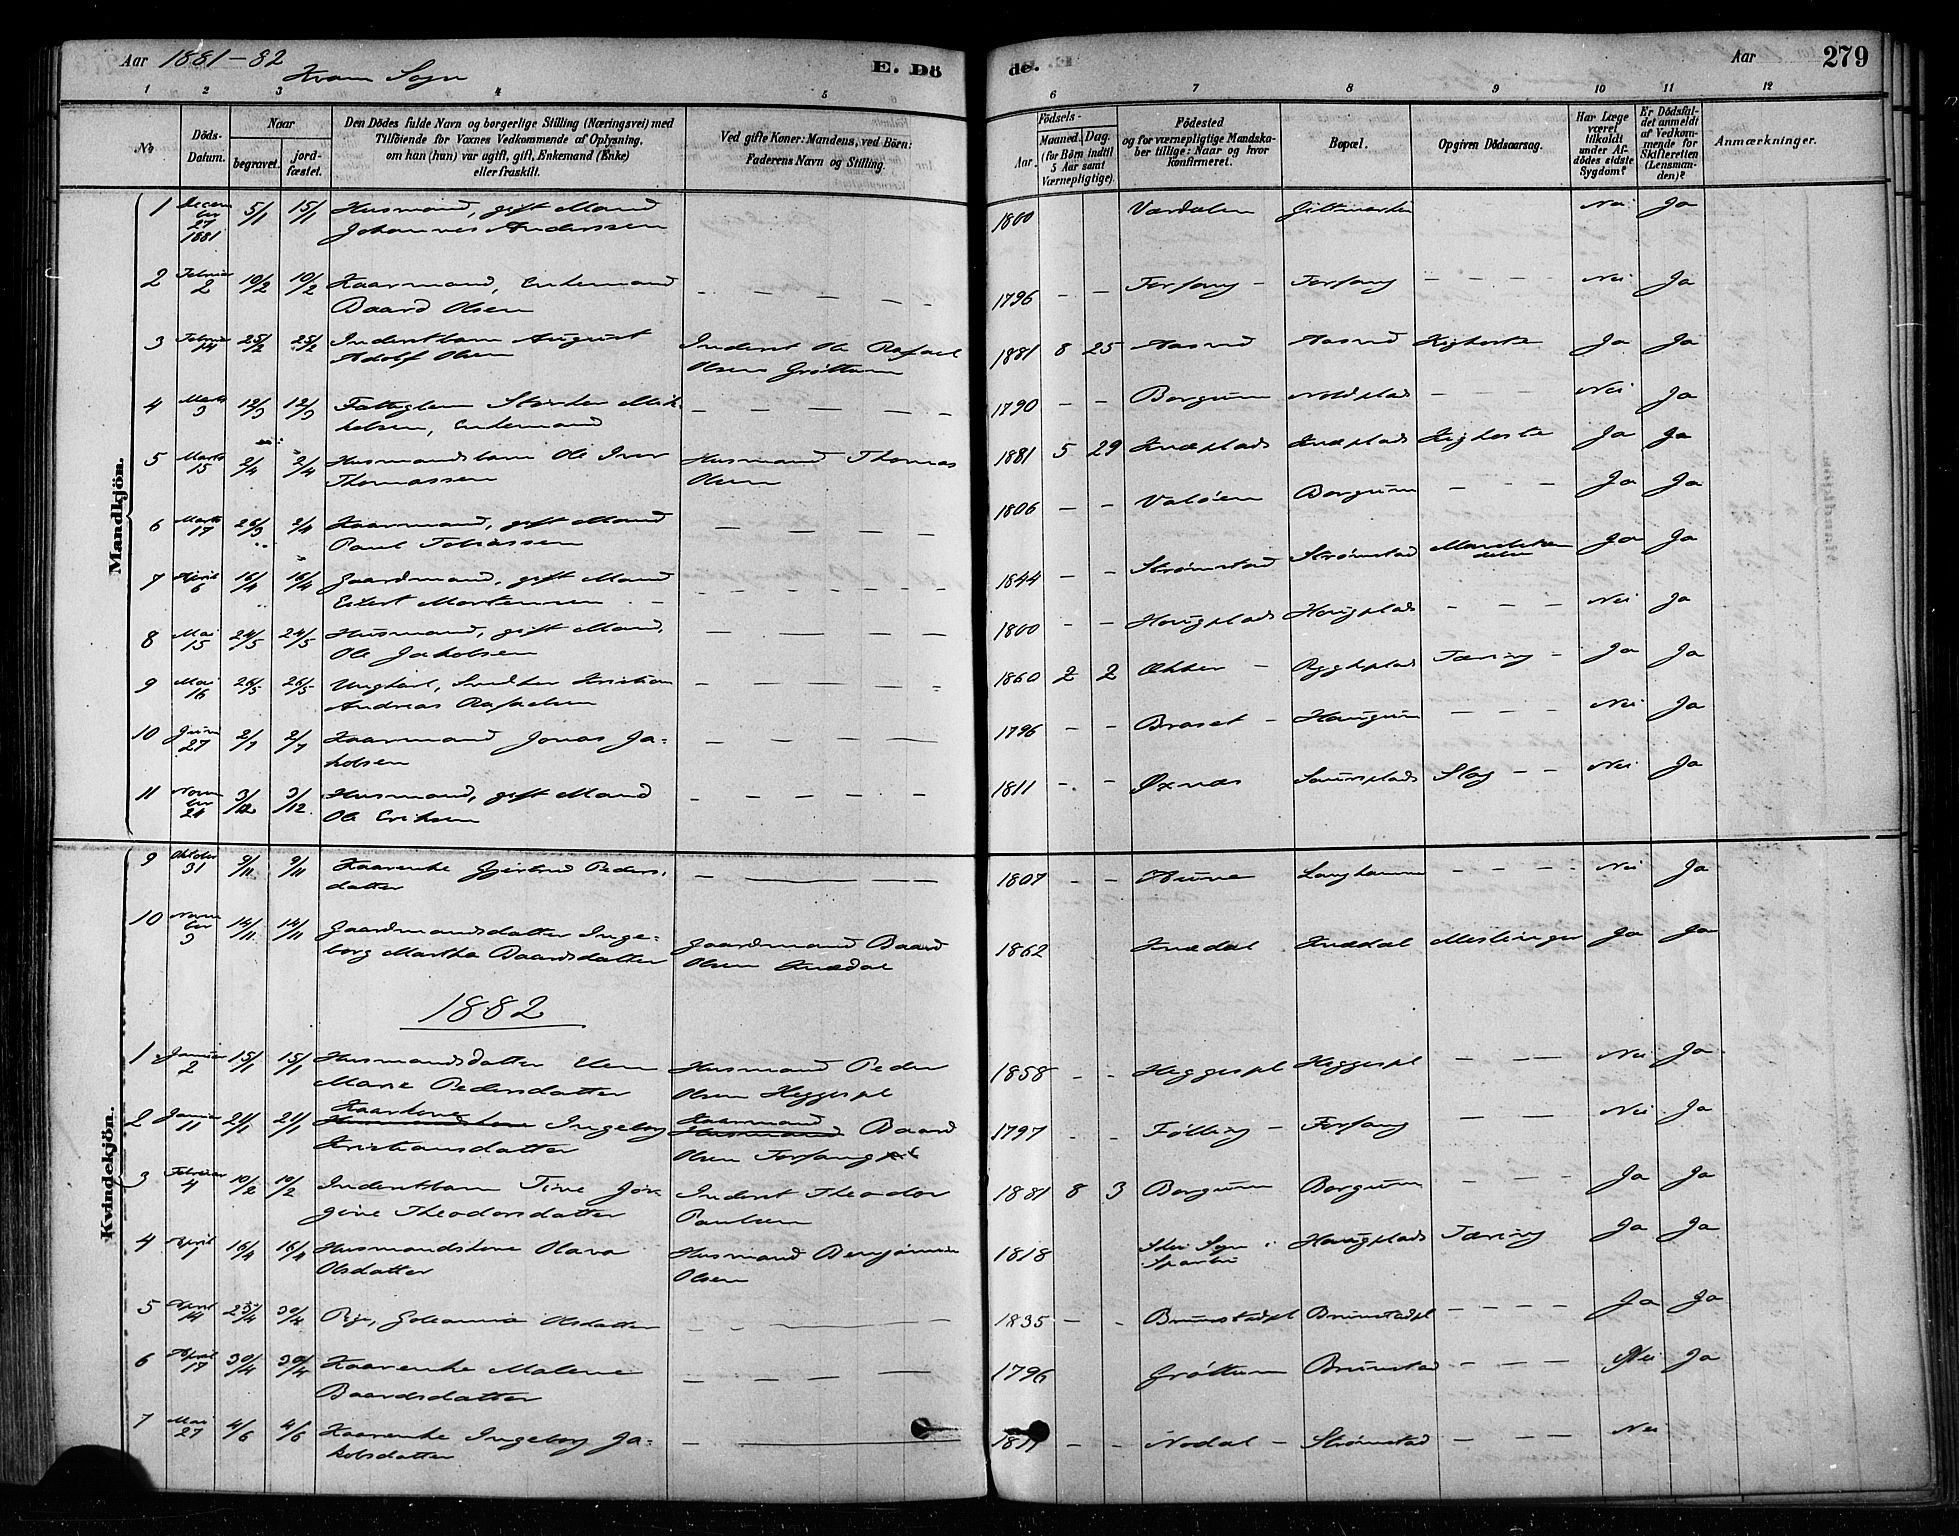 Aar 1881-82
Kvam Sogn
E. Dö
de.
Aar
279
1 2 3 4 5 6 7 8 9 10 11 12
No
Döds-Datum.
Naar
begravet.
jordfæstet.
Den Dödes fulde Navn og borgerlige Stilling (Næringsvei) med
Tilföiende for Voxnes Vedkommende af Oplysning,
om han (hun) var ugift, gift, Enkemand (Enke)
eller fraskilt.
Ved gifte Koner: Mandens, ved Börn:
Faderens Navn og Stilling.
Födsels-
Aar.
Maaned. Dag.
(for Börn indtil
5 Aar samt
Værnepligtige).
Födested
og for værnepligtige Mandskaber tillige: Naar og hvor
konfirmeret.
Bopæl.
Opgiven Dödsaarsag.
Har Læge
været
tilkaldt
under Afdödes sidste
Sygdom?
Er Dödsfaldet anmeldt
af Vedkommende for
Skifteretten
(Lensmanden)?
Anmærkninger.
Mandkjön.
1 Decem ber 27 1881 5/1 15/1 Husmand, gift Mand Johannes Anderssen 1800 Værdalen Nei Ja
2 Februar 2 10/2 10/2 Kaarmand, Enkemand Baard Olsen 1796 Forfang Forfang Nei Ja
3 Februar 14 25/2 25/2 Inderstbarn August Adolf Olsen Inderst Ole Rafael Olsen Grøttum 1881 8 25 Aasved Aasved Kighoste Ja Ja
4 Marts 3 12/3 12/3 Fattiglem Enkemand 1790 Borgum Nei Ja
5 Marts 15 2/4 2/4 Husmandsbarn Ole Iver Thomassen Husmand Thomas Olsen 1881 5 29 Knæplads Knæplads Kighoste Ja Ja
6 Marts 17 26/3 2/4 Kaarmand, gift Mand Paul Tobiassen 1806 Valøen Borgum Ja Ja
7 April 6 16/4 16/4 Gaardmand, gift Mand Eilert Mortensen 1844 Strømstad Strømstad Ja Ja
8 Mai 15 24/5 24/5 Husmand, gift Mand, Ole Jakobsen 1800 Haugplads Haugplads Nei Ja
9 Mai 16 26/5 26/5 Ungkarl, Kristian Andreas Rafaelsen 1860 2 2 Tæring Ja Ja
10 Juni 27 2/7 2/7 Kaarmand Jonas Jakobsen 1796 Braset Haugum Nei Ja
11 Novem ber 21 3/12 3/12 Husmand, gift Mand Ole Eriksen 1811 Øxnæs Slag Nei Ja
Kvindekjön.
9 Oktober 31 9/11 9/11 Kaarenke Gjertrud Pedersdatter 1807 Nei Ja
10 Novem ber 3 14/11 14/11 Gaardmandsdatter Ingeborg Martha Baardsdatter Gaardmand Baard Olsen Knædal 1862 Knædal Knædal Meslinger Ja Ja
1882
1 Januar 2 15/1 15/1 Husmandsdatter Elen Marie Pedersdatter Husmand Peder Olsen Heggespl 1858 Heggespl Heggespl Nei Ja
2 Januar 11 21/1 21/1 Kaarkone Ingeborg Kristiansdatter Kaarmand Husmand Baard Olsen Forfang 1797 Følling Forfang Nei Ja
3 Februar 4 10/2 10/2 Inderstbarn Tine Jørgine Theodorsdatter Inderst Theodor Paulsen 1881 8 3 Borgum Borgum Ja Ja
4 April 7 16/4 16/4 Husmandskone Olava Olsdatter Husmand Benjamin Olsen 1818 Skei Sogn i Sparbu Haugplads Tæring Ja Ja
5 April 14 23/4 30/4 Pige, Johanna Olsdatter 1835 Brumstadpl Brumstadpl Ja Ja
6 April 17 30/4 30/4 Kaarenke Malene Baardsdatter 1796 Grøttum Brumstad Nei Ja
7 Mai 27 4/6 4/6 Kaarenke Ingeborg Jakobsdatter Nodal Strømstad Nei